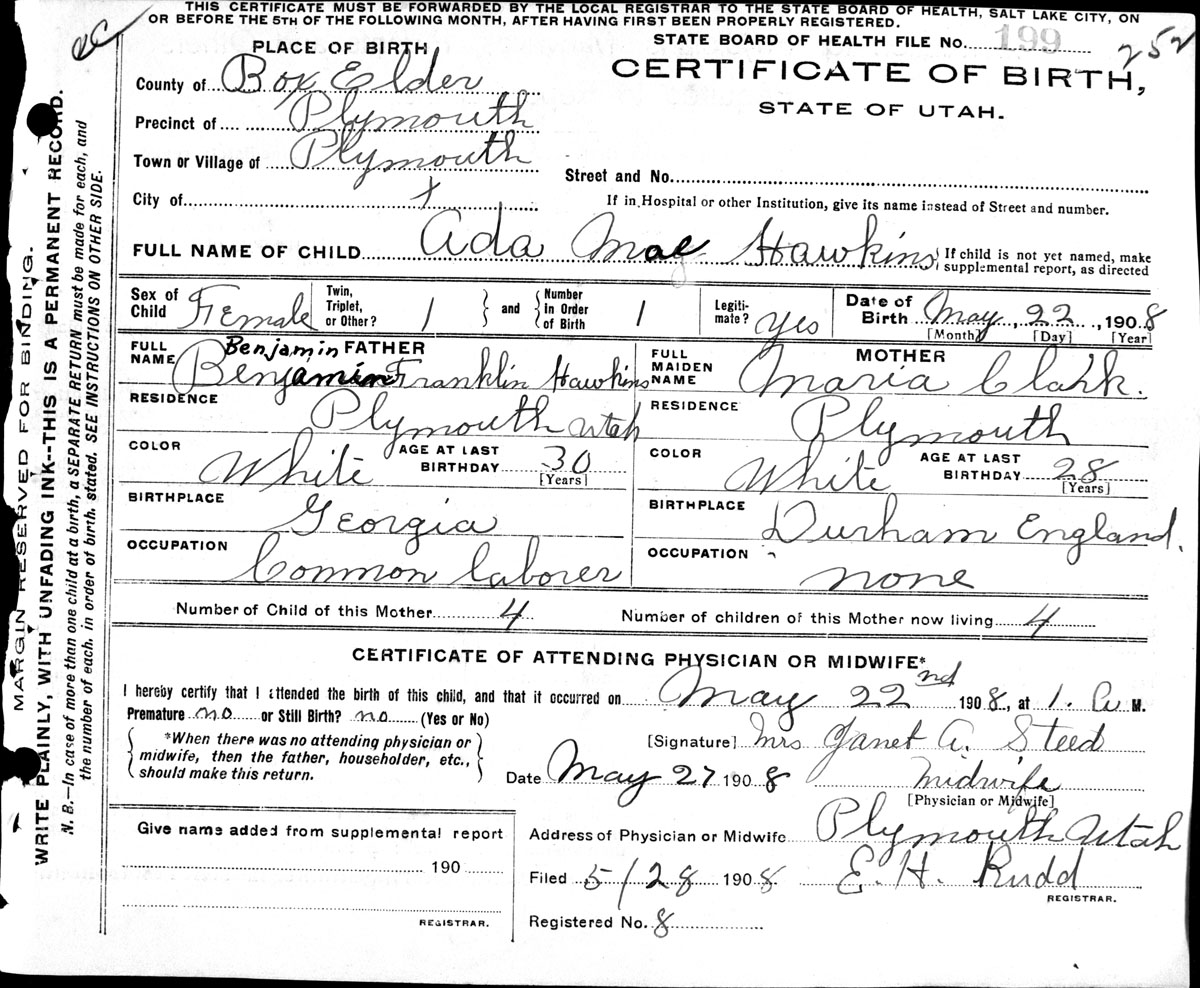 THIS CERTIFICATE MUST BE FORWARDED BY THE LOCAL REGISTRAR TO THE STATE BOARD OF HEALTH, SALT LAKE CITY, ON
OR BEFORE THE 5TH OF THE FOLLOWING MONTH, AFTER HAVING FIRST BEEN PROPERLY REGISTERED.
STATE BOARD OF HEALTH FILE No. 199 252
CERTIFICATE OF BIRTH,
STATE OF UTAH.
PLACE OF BIRTH
County of Box Elder
Precinct of Plymouth
Town or Village of Plymouth
City of x
Street and No.
If in Hospital or other Institution, give its name instead of Street and number.
FULL NAME OF CHILD Ada Mae Hawkins { If child is not yet named, make supplemental report, as directed
Sex of Child Female
Twin, Triplet, or Other? 1 } and { Number in Order of Birth 1
Legiti-mate? yes
Date of Birth May, 22, 1908
[Month] [Day] [Year]
FATHER
FULL NAME Benjamin
Benjamin Franklin Hawkins
RESIDENCE Plymouth Utah
COLOR White AGE AT LAST BIRTHDAY 30 [Years]
BIRTHPLACE Georgia
OCCUPATION Common Laborer
MOTHER
FULL MAIDEN NAME Maria Clark.
RESIDENCE Plymouth
COLOR White AGE AT LAST BIRTHDAY 28 [Years]
BIRTHPLACE Durham England.
OCCUPATION none
Number of Child of this Mother 4 Number of children of this Mother now living 4
CERTIFICATE OF ATTENDING PHYSICIAN OR MIDWIFE*
I hereby certify that I attended the birth of this child, and that it occurred on May 22nd 1908, at 1. a M.
Premature no or Still Birth? no (Yes or No)
{ *When there was no attending physician or
midwife, then the father, householder, etc.,
should make this return. }
[Signature] Mrs Janet A. Steed
Date May 27 1908 Midwife
[Physician or Midwife]
Give name added from supplemental report
190
REGISTRAR.
Address of Physician or Midwife Plymouth Utah
Filed 5/28 1908 E. H. Rudd
REGISTRAR.
Registered No. 8
MARGIN RESERVED FOR BINDING.
WRITE PLAINLY, WITH UNFADING INK--THIS IS A PERMANENT RECORD.
N. B.—In case of more than one child at a birth, a SEPARATE RETURN must be made for each, and
the number of each, in order of birth, stated. SEE INSTRUCTIONS ON OTHER SIDE.